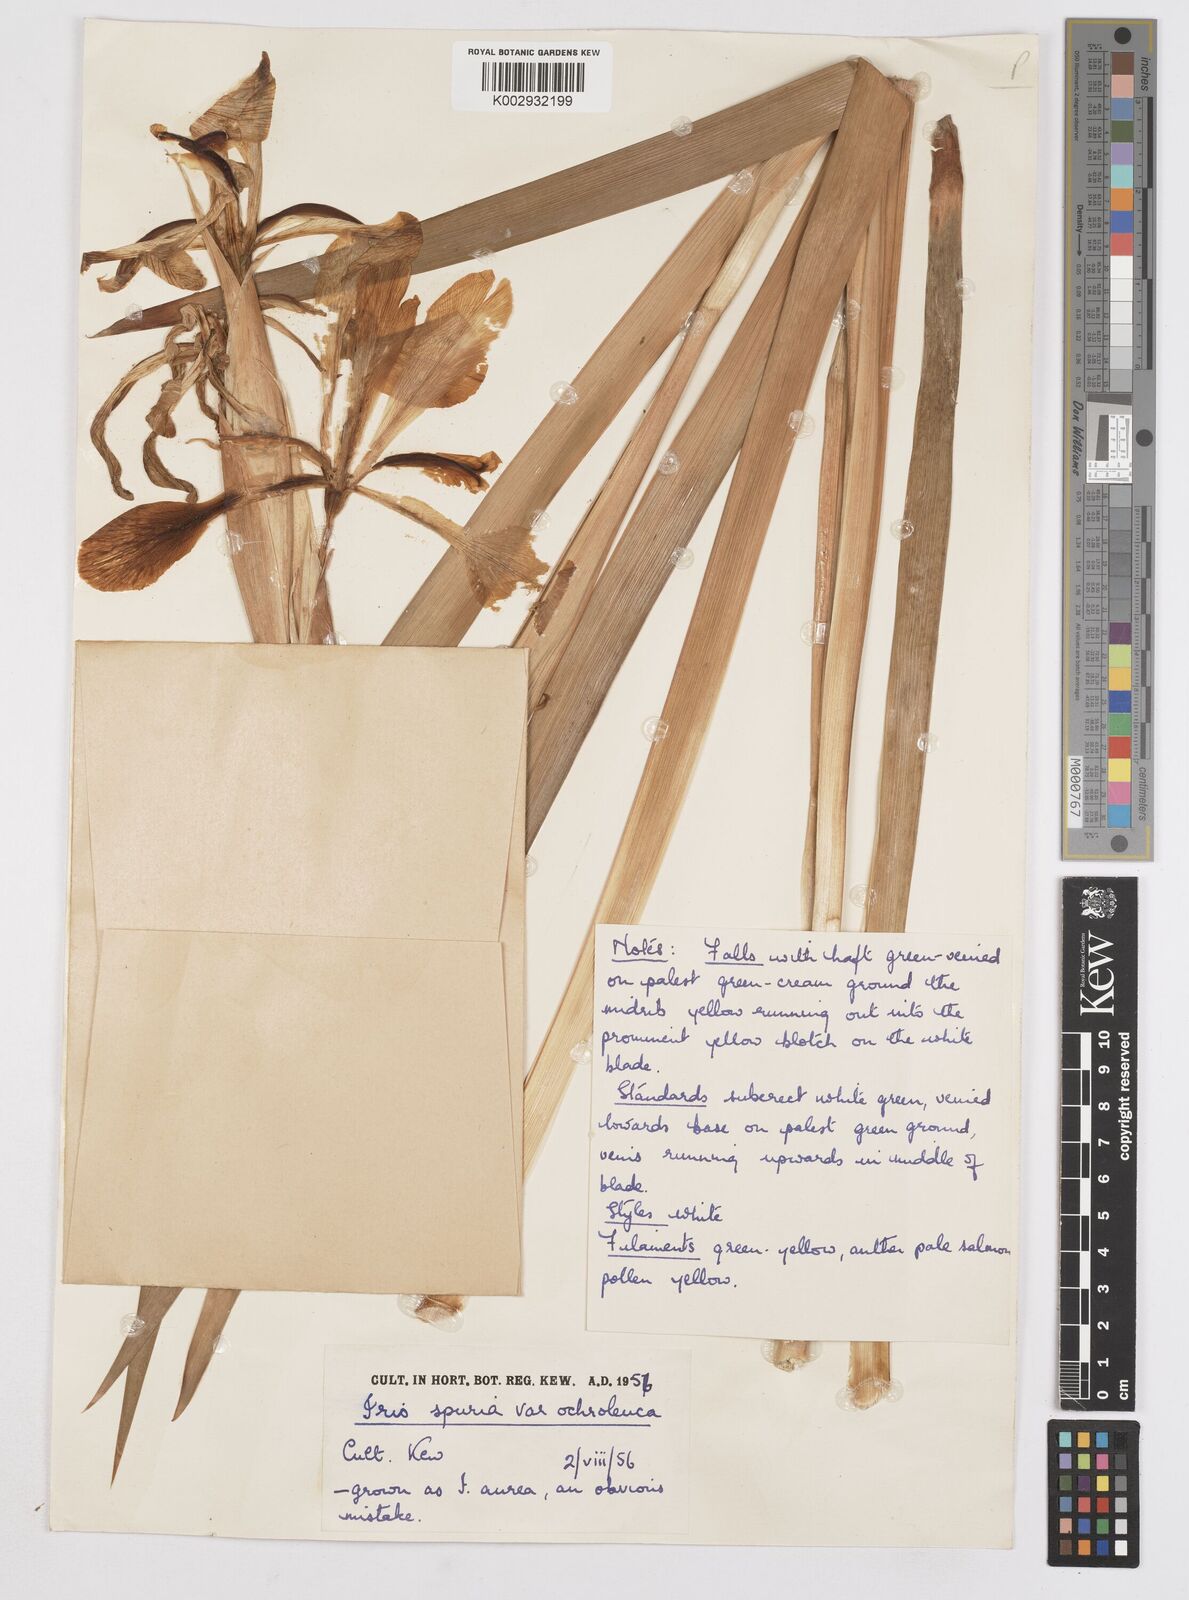 ROYAL BOTANIC GARDENS KEW
K002932199
P
inches
centimeters
Don Williams
M000767
Notes: Falls with haft green-veined
on palest green-cream ground the
midrib yellow running out into the
prominent yellow blotch on the white
blade.
Standards suberect white green, veined
towards base on palest green ground,
veins running upwards in middle of
blade.
Styles white
Filaments green-yellow, anther pale salmon
pollen yellow.
CULT. IN HORT. BOT. REG. KEW. A.D. 1956
Iris spuria var ochroleuca
Cult. Kew 2/viii/56
- grown as I. aurea, an obvious
mistake.
Royal Botanic Gardens
Kew
0 1 2 3 4 5 6 7 8 9 10
cm
copyright reserved